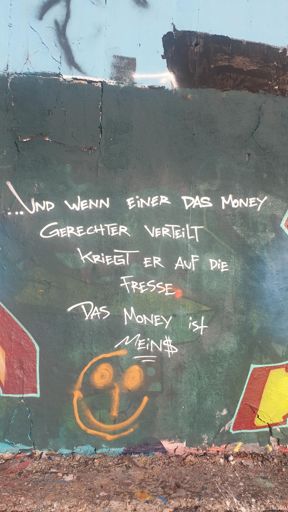 ...UND WENN EINER DAS MONEY
GERECHTER VERTEILT
KRIEGT ER AUF DIE
FRESSE
DAS MONEY iST
MEIN$